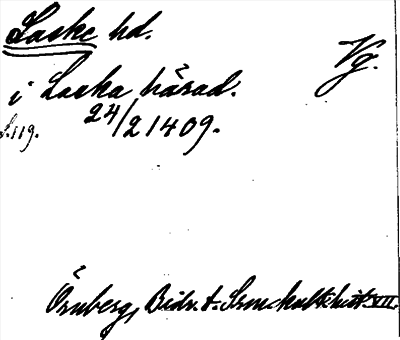 Laske hd.
Vg.
i Laska härad.
S. 119. 24/2 1409.
Örnberg, Bidr. t. Sven. kult.hist. VII.